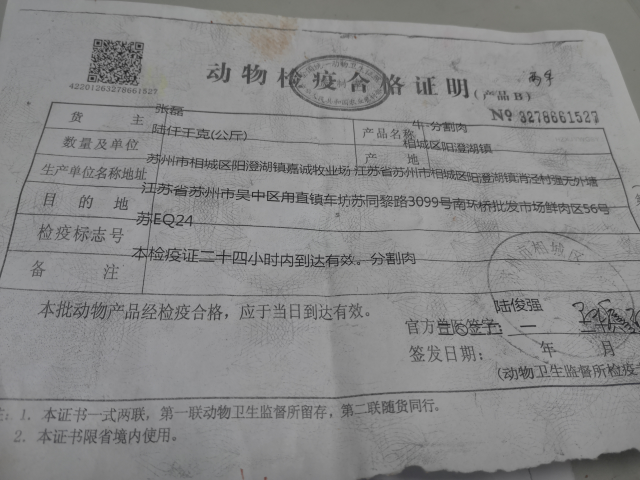 动物检疫合格证明(产品B)
42201263278661527
№ 3278661527
货 主 张磊 产品名称 牛-分割肉
数量及单位 陆仟千克(公斤) 产 地 相城区阳澄湖镇
生产单位名称地址 苏州市相城区阳澄湖镇嘉诚牧业场 江苏省苏州市相城区阳澄湖镇消泾村强芜外塘
目 的 地 江苏省苏州市吴中区甪直镇车坊苏同黎路3099号南环桥批发市场鲜肉区56号
检疫标志号 苏EQ24
备 注 本检疫证二十四小时内到达有效。分割肉
本批动物产品经检疫合格，应于当日到达有效。
陆俊强
官方兽医签字：
签发日期： 年 月
(动物卫生监督所检疫
注：1. 本证书一式两联，第一联动物卫生监督所留存，第二联随货同行。
2. 本证书限省境内使用。